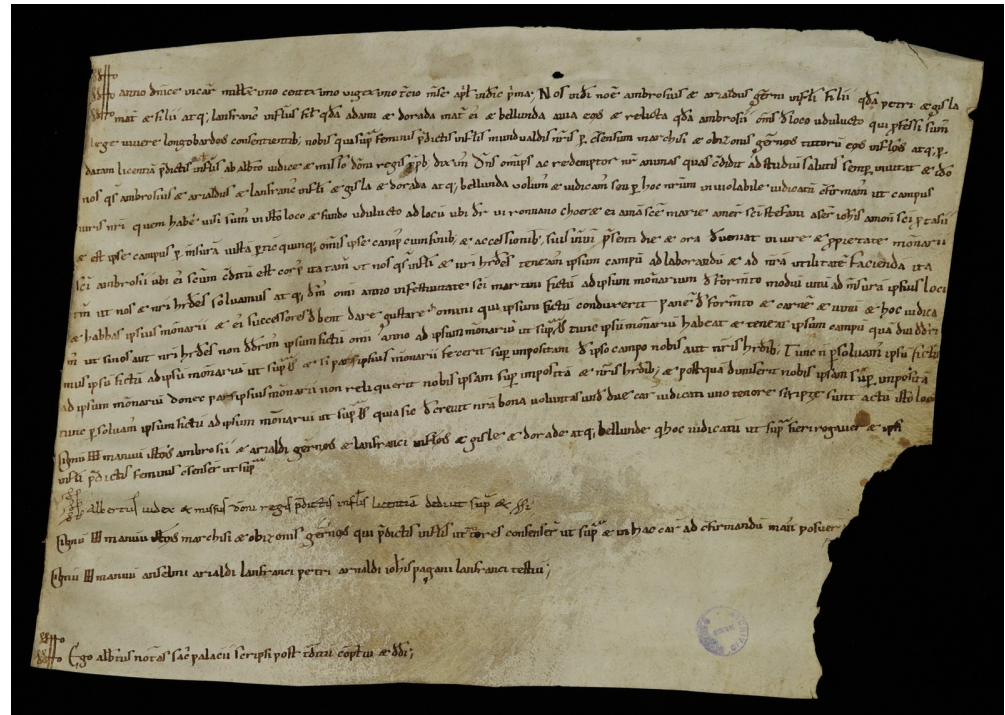 anno dnice incar mill uno centeximo vigeximo tcio mse apl indic pma; Nos indi noe ambrosius & arialdus germi infti filii qda petri & gisla
mat & filii atq; lanfranc inftus filt qda adam & dorada mat ei & bellunda avia eos & relicta qda ambrosii oms d loco vdulucto qui pfessi sum
lege vivere longobardos consentientib; nobis qui sup feminis pdictis inftis mundualdis nris p csensum marchisi & obizonis germos tutoru eos inftos atq; p
datam licentia pdictis inftis ab albto iudice & misso doni regis ppb; dixim Dns omips ac redemptor nr animas quas cdidit ad studiu salutis semp invitat & ido
nos qs ambrosius & arialdus & lanfranc infti & gisla & dorada atq; bellunda volum & iudicam seu p hoc nrum inviolabile iudicatu cfirmam ut campus
iuris nri quem habe visi sum in isto loco & fundo vdulucto ad locu ubi dr in ronnano choer & ei a mane sce marie a mer sci stefani a ser iohis a mon sci ptasii
& est ipse campus p msura iusta ptic quinq; omis ipse camp cum finib; & accessionib; suis inim psenti die & ora deveniat in iure & pprietate monarii
sci ambrosii ubi ei scum cditu est corp ita tam ut nos qs infti & nri hrdes teneam ipsum campu ad laborandu & ad nra utilitate facienda ita
tm ut nos & nri hrdes solvamus atq; dm omi anno in festivitate sci martini fictu ad ipsum monarium d formto modiu unu ad msura ipsius loci
& habbas ipsius monarii & ei successores dbent dare gustare omini qui ipsum fictu conduxerit pane d formto & carne & vinu & hoc iudica
m ut si nos aut nri hrdes non ddrim ipsum fictu omi anno ad ipsum monariu ut sup; tunc ipsu monariu habeat & teneat ipsum campu qua diu ddri
mus ipsu fictu ad ipsu monariu ut sup & si pars ipsius monarii fecerit sup impositam d ipso campo nobis aut nris hrdib; Tunc n psolvam ipsu fictu
ad ipsum monariu donec pars ipsius monarii non reliquerit nobis ipsam sup imposita & nris hrdib; & postqua dimiserit nobis ipsam sup imposita
tunc psolvam ipsum fictu ad ipsum monariu ut sup quia sic decrevit nra bona voluntas unde due car iudicati uno tenore scripte sunt actu isto loco
Signu manuu istos ambrosii & arialdi germos & lanfranci inftos & gisle & dorade atq; bellunde q hoc iudicatu ut sup fieri rogaver & ipsi
infti pdictis feminis csenser ut sup
Albertus iudex & missus doni regis pdictis inftis licentia dedi ut sup & ssi
Signu manuu istos marchisi & obizonis germos qui pdictis inftis ut tutores consenser ut sup & in hac car ad cfirmandu manu posuer
Signu manuu anselmi arialdi lanfranci petri arnaldi iohis pagani lanfranci testiu;
Ego albtus notas sac palacii scripsi post tditu coplevi & ddi;